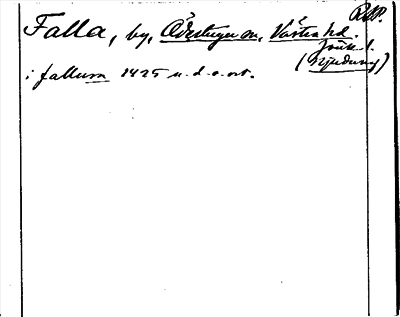 RAP.
Falla, by, Ödestugu sn, Västra hd.
Jönk. l.
i fallum 1425 u. d. o. ort. (Njudung)